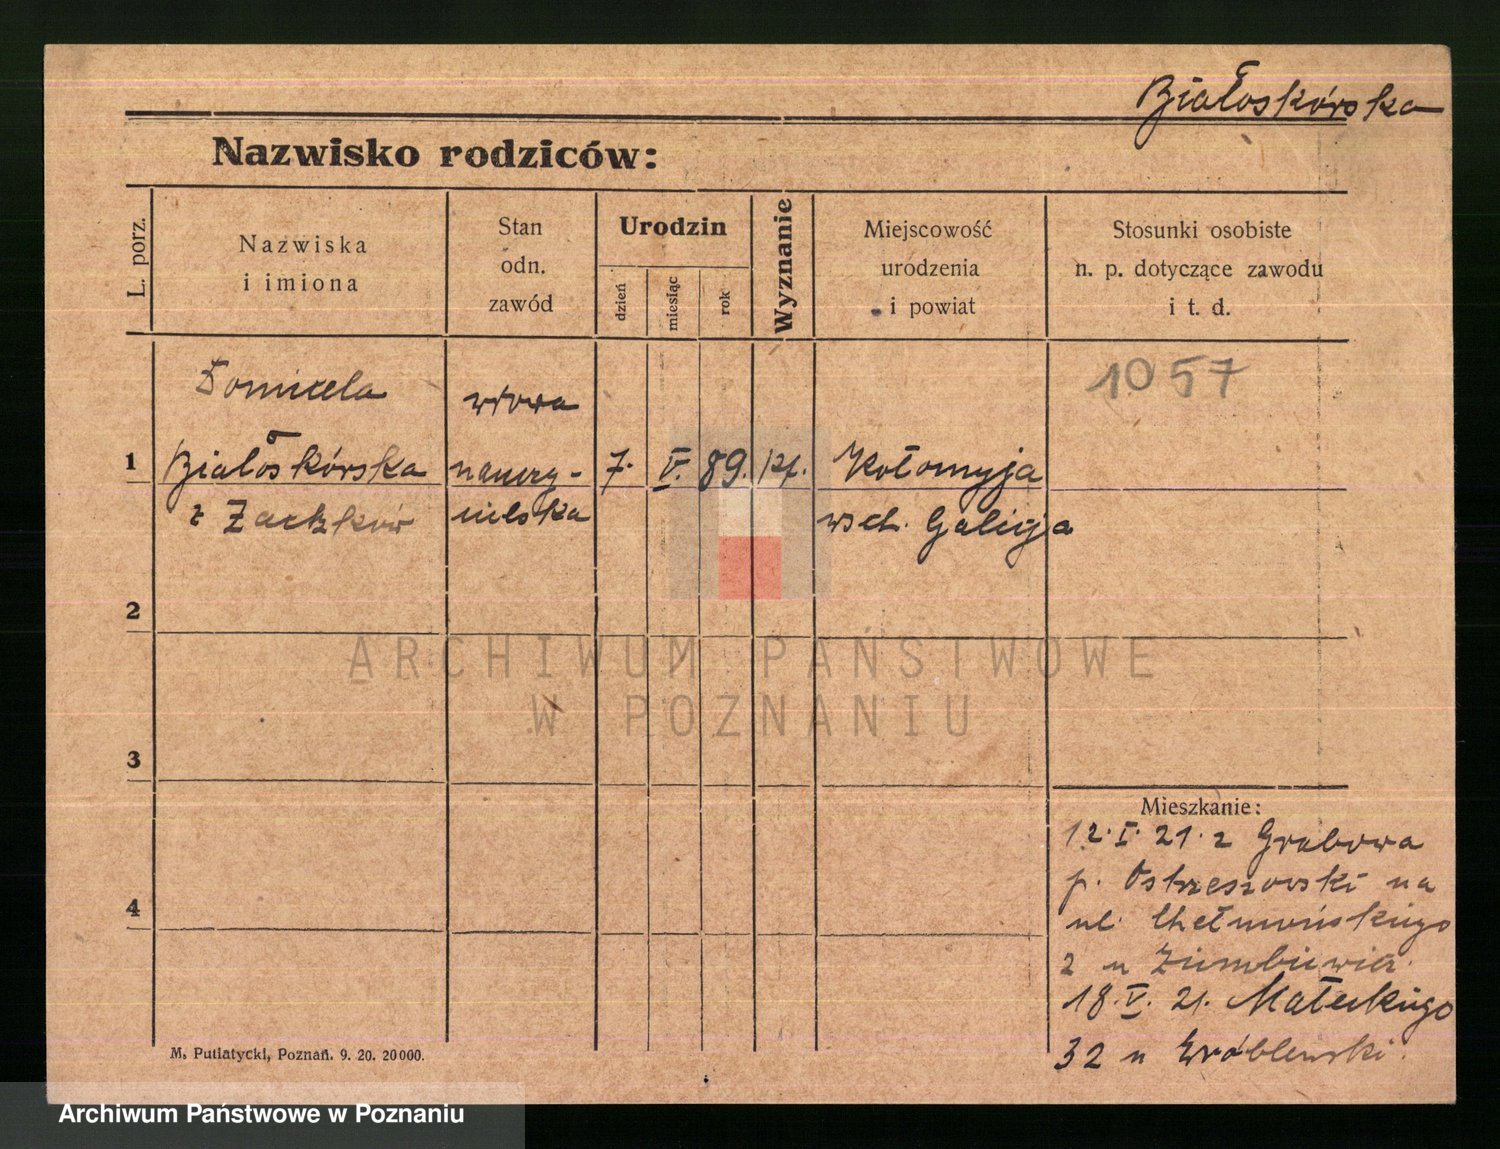 Białoskórska
Nazwisko rodziców:
L. porz.
Nazwiska
i imiona
Stan
odn.
zawód
Urodzin
dzień
miesiąc
rok
Wyznanie
Miejscowość
urodzenia
i powiat
Stosunki osobiste
n. p. dotyczące zawodu
i t. d.
1057
wdowa
1
Białoskórska
7. V. 89.
Kołomyja
wsch. Galicja
2
ARCHIWUM PAŃSTWOWE
W POZNANIU
3
Mieszkanie:
12. I. 21. z Grabowa
p. Ostrzeszowski na
ul. Chełmońskiego
4
2 u
18. V. 21. Małeckiego
32 u Wróblewski.
M. Putiatycki, Poznań. 9. 20. 20000.
Archiwum Państwowe w Poznaniu